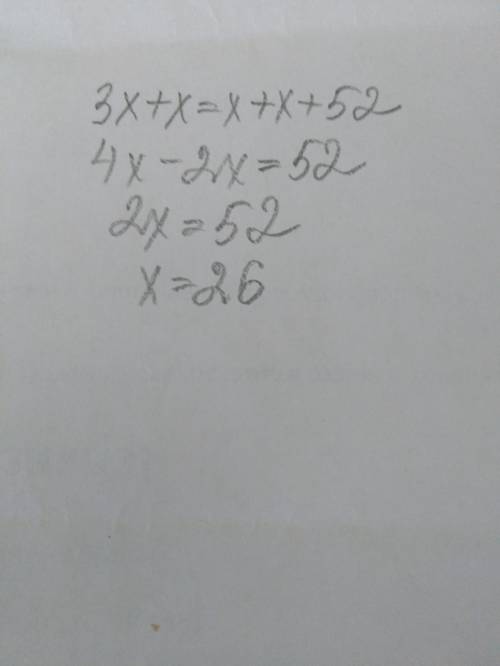 3x+x=x+x+52
4x-2x=52
2x=52
x=26